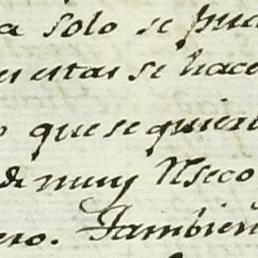 a solo se pue
es estas se hace
o que se quier
de muy Nseco
ero. Tambien